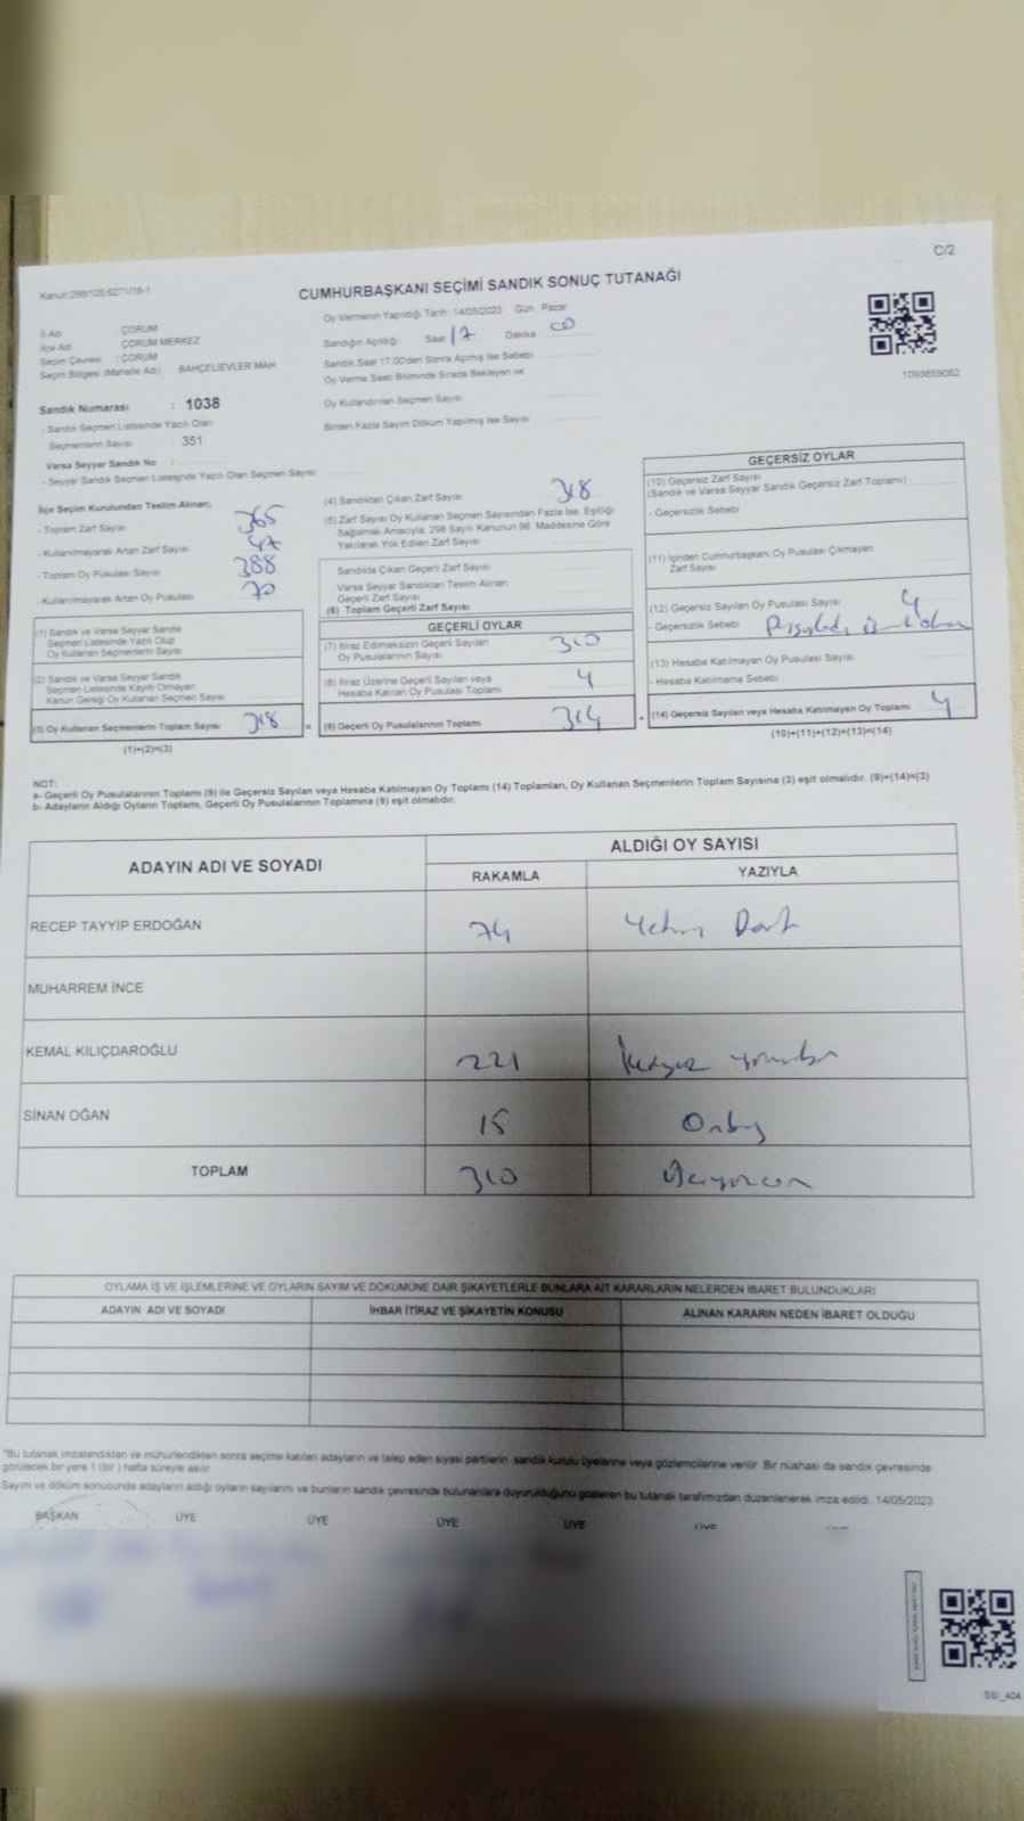 C/2
Kanun:298/105,6271/18-1
CUMHURBAŞKANI SEÇİMİ SANDIK SONUÇ TUTANAĞI
Oy Vermenin Yapıldığı Tarih : 14/05/2023 Gün : Pazar
İl Adı : ÇORUM
İlçe Adı : ÇORUM MERKEZ
Seçim Çevresi : ÇORUM
Seçim Bölgesi (Mahalle Adı) : BAHÇELİEVLER MAH.
Sandığın Açıldığı : Saat 17 Dakika 00
Sandık Saat 17.00'den Sonra Açılmış İse Sebebi
Oy Verme Saati Bitiminde Sırada Bekleyen ve
Oy Kullandırılan Seçmen Sayısı
Birden Fazla Sayım Döküm Yapılmış İse Sayısı
Sandık Numarası : 1038
- Sandık Seçmen Listesinde Yazılı Olan
Seçmenlerin Sayısı : 351
Varsa Seyyar Sandık No :
- Seyyar Sandık Seçmen Listesinde Yazılı Olan Seçmen Sayısı
İlçe Seçim Kurulundan Teslim Alınan;
- Toplam Zarf Sayısı 365
- Kullanılmayarak Artan Zarf Sayısı 47
- Toplam Oy Pusulası Sayısı 388
- Kullanılmayarak Artan Oy Pusulası 70
(1) Sandık ve Varsa Seyyar Sandık
Seçmen Listesinde Yazılı Olup
Oy Kullanan Seçmenlerin Sayısı
(2) Sandık ve Varsa Seyyar Sandık
Seçmen Listesinde Kayıtlı Olmayan
Kanun Gereği Oy Kullanan Seçmen Sayısı
(3) Oy Kullanan Seçmenlerin Toplam Sayısı 318
(1)+(2)=(3)
(4) Sandıktan Çıkan Zarf Sayısı 318
(5) Zarf Sayısı Oy Kullanan Seçmen Sayısından Fazla İse, Eşitliği
Sağlamak Amacıyla, 298 Sayılı Kanunun 98. Maddesine Göre
Yakılarak Yok Edilen Zarf Sayısı
Sandıkta Çıkan Geçerli Zarf Sayısı
Varsa Seyyar Sandıktan Teslim Alınan
Geçerli Zarf Sayısı
(6) Toplam Geçerli Zarf Sayısı
GEÇERLİ OYLAR
(7) İtiraz Edilmeksizin Geçerli Sayılan
Oy Pusulalarının Sayısı 310
(8) İtiraz Üzerine Geçerli Sayılan veya
Hesaba Katılan Oy Pusulası Toplamı 4
(9) Geçerli Oy Pusulalarının Toplamı 314
GEÇERSİZ OYLAR
(10) Geçersiz Zarf Sayısı
(Sandık ve Varsa Seyyar Sandık Geçersiz Zarf Toplamı)
- Geçersizlik Sebebi
(11) İçinden Cumhurbaşkanı Oy Pusulası Çıkmayan
Zarf Sayısı
(12) Geçersiz Sayılan Oy Pusulası Sayısı 4
- Geçersizlik Sebebi
(13) Hesaba Katılmayan Oy Pusulası Sayısı
- Hesaba Katılmama Sebebi
(14) Geçersiz Sayılan veya Hesaba Katılmayan Oy Toplamı 4
(10)+(11)+(12)+(13)=(14)
NOT:
a- Geçerli Oy Pusulalarının Toplamı (9) ile Geçersiz Sayılan veya Hesaba Katılmayan Oy Toplamı (14) Toplamları, Oy Kullanan Seçmenlerin Toplam Sayısına (3) eşit olmalıdır. (9)+(14)=(3)
b- Adayların Aldığı Oyların Toplamı, Geçerli Oy Pusulalarının Toplamına (9) eşit olmalıdır.
ADAYIN ADI VE SOYADI
ALDIĞI OY SAYISI
RAKAMLA
YAZIYLA
RECEP TAYYİP ERDOĞAN 74 Yetmiş Dört
MUHARREM İNCE
KEMAL KILIÇDAROĞLU 221 İkiyüz yirmibir
SİNAN OĞAN 15 Onbeş
TOPLAM 310 Üçyüzon
OYLAMA İŞ VE İŞLEMLERİNE VE OYLARIN SAYIM VE DÖKÜMÜNE DAİR ŞİKAYETLERLE BUNLARA AİT KARARLARIN NELERDEN İBARET BULUNDUKLARI
ADAYIN ADI VE SOYADI
İHBAR İTİRAZ VE ŞİKAYETİN KONUSU
ALINAN KARARIN NEDEN İBARET OLDUĞU
"Bu tutanak imzalandıktan ve mühürlendikten sonra seçime katılan adayların ve talep eden siyasi partilerin sandık kurulu üyelerine veya gözlemcilerine verilir. Bir nüshası da sandık çevresinde
görülecek bir yere 1 (bir) hafta süreyle asılır.
Sayım ve döküm sonucunda adayların aldığı oyların sayılarını ve bunların sandık çevresinde bulunanlara duyurulduğunu gösteren bu tutanak tarafımızdan düzenlenerek imza edildi. 14/05/2023
BAŞKAN ÜYE ÜYE ÜYE ÜYE ÜYE